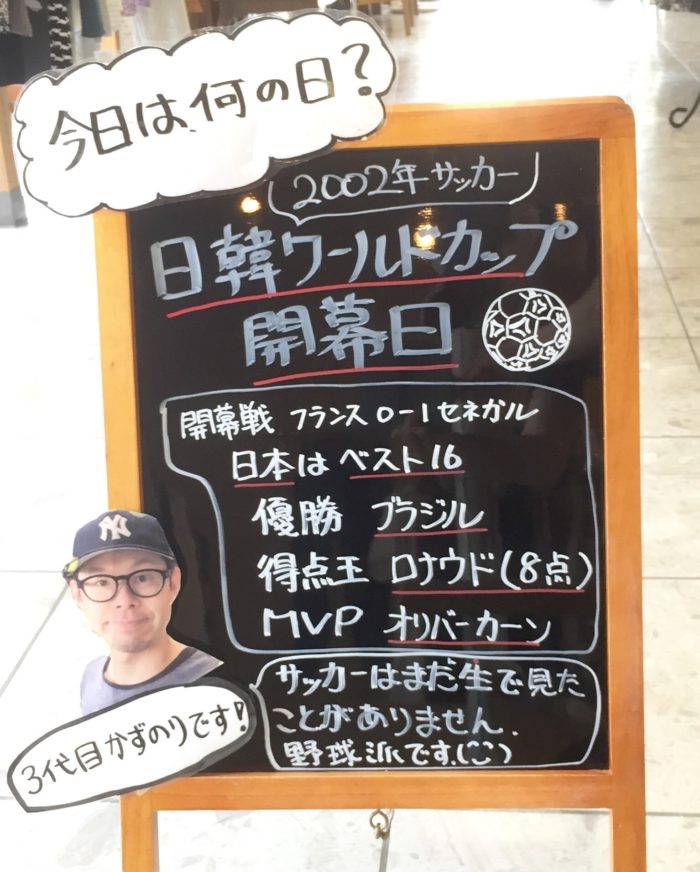 今日は何の日?
2002年サッカー
日韓ワールドカップ
開幕日
開幕戦 フランス0-1セネガル
日本はベスト16
優勝 ブラジル
得点王 ロナウド(8点)
MVP オリバーカーン
サッカーはまだ生で見た
ことがありません.
野球派です.(^^)
NY
3代目かずのりです!